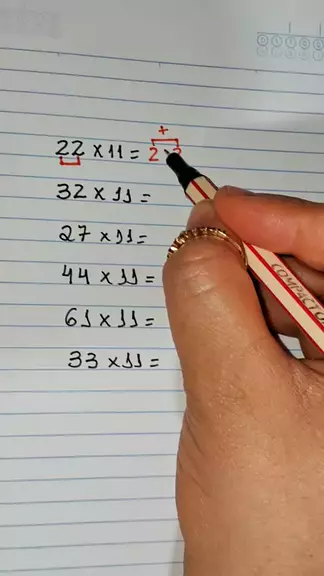 +
22 x 11 = 2 2
32 x 11 =
27 x 11 =
44 x 11 =
61 x 11 =
33 x 11 =
COMPACTO